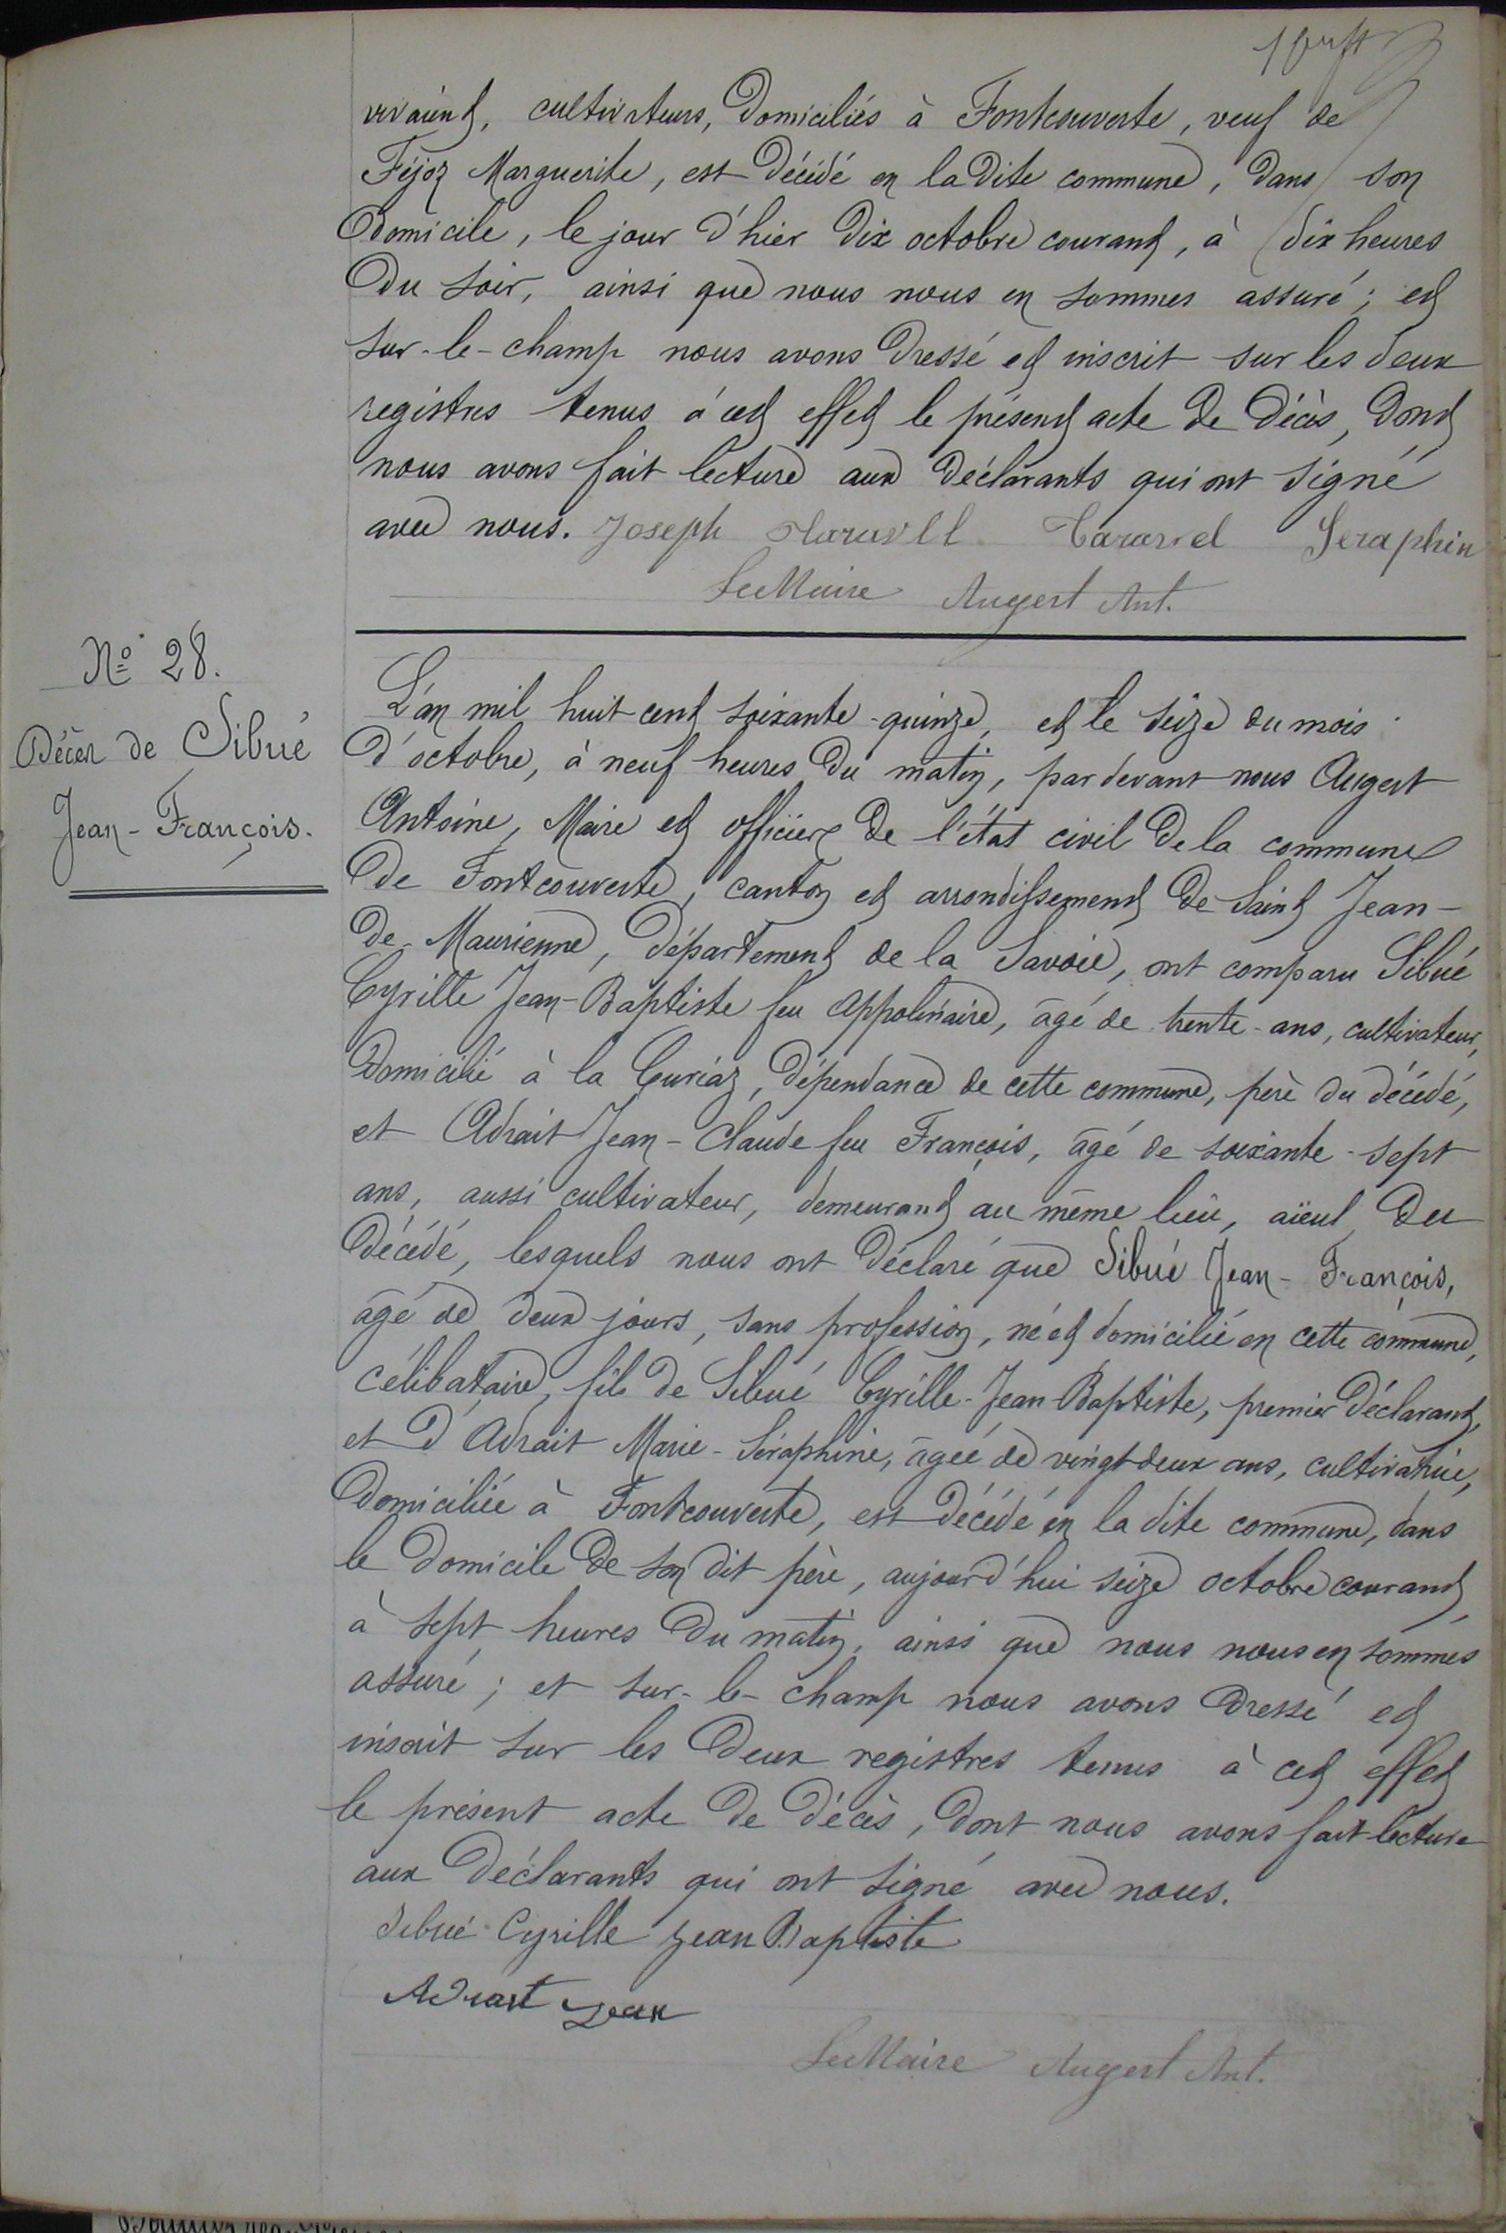 vivaient, cultivateurs, Domiciliés à Fontcouverte, veuf de
Féjoz Marguerite, est Décédé en la dite commune, dans son
Domicile, le jour d'hier dix octobre courant, à dix heures
Du soir, ainsi que nous nous en sommes assuré; et
sur-le-champ nous avons Dressé et inscrit sur les deux
registres tenus à cet effet le présent acte de Décès, Dont
nous avons fait lecture aux Déclarants qui ont signé
avec nous. Joseph Taravel Séraphin
Le Maire Augert Ant.
N° 28.
Décès de Sibué
Jean-François.
L'an mil huit cent soixante-quinze, et le seize du mois
d'octobre, à neuf heures du matin, par devant nous Augert
Antoine, Maire et officier de l'état civil de la commune
de Fontcouverte, canton et arrondissement de Saint Jean-
de-Maurienne, Département de la Savoie, ont comparu Sibué
Cyrille Jean-Baptiste feu Appolinaire, âgé de trente-ans, cultivateur,
Domicilié à la Curiaz, Dépendance de cette commune, père du décédé,
et Adrait Jean-Claude feu François, âgé de soixante-sept
ans, aussi cultivateur, demeurant au même lieu, aïeul du
Décédé, lesquels nous ont Déclaré que Sibué Jean-François,
âgé de deux jours, sans profession, né et domicilié en cette commune,
célibataire, fils de Sibué Cyrille-Jean-Baptiste, premier Déclarant,
et d'Adrait Marie-Séraphine, âgée de vingt-deux ans, cultivatrice,
Domiciliée à Fontcouverte, est Décédé en la dite commune, dans
le Domicile de son dit père, aujourd'hui seize octobre courant,
à sept heures du matin, ainsi que nous nous en sommes
assuré; et sur-le-champ nous avons Dressé et
inscrit sur les deux registres tenus à cet effet
le présent acte de Décès, dont nous avons fait lecture
aux Déclarants qui ont signé avec nous.
Sibué Cyrille Jean Baptiste
Adrait Jean
Le Maire Augert Ant.